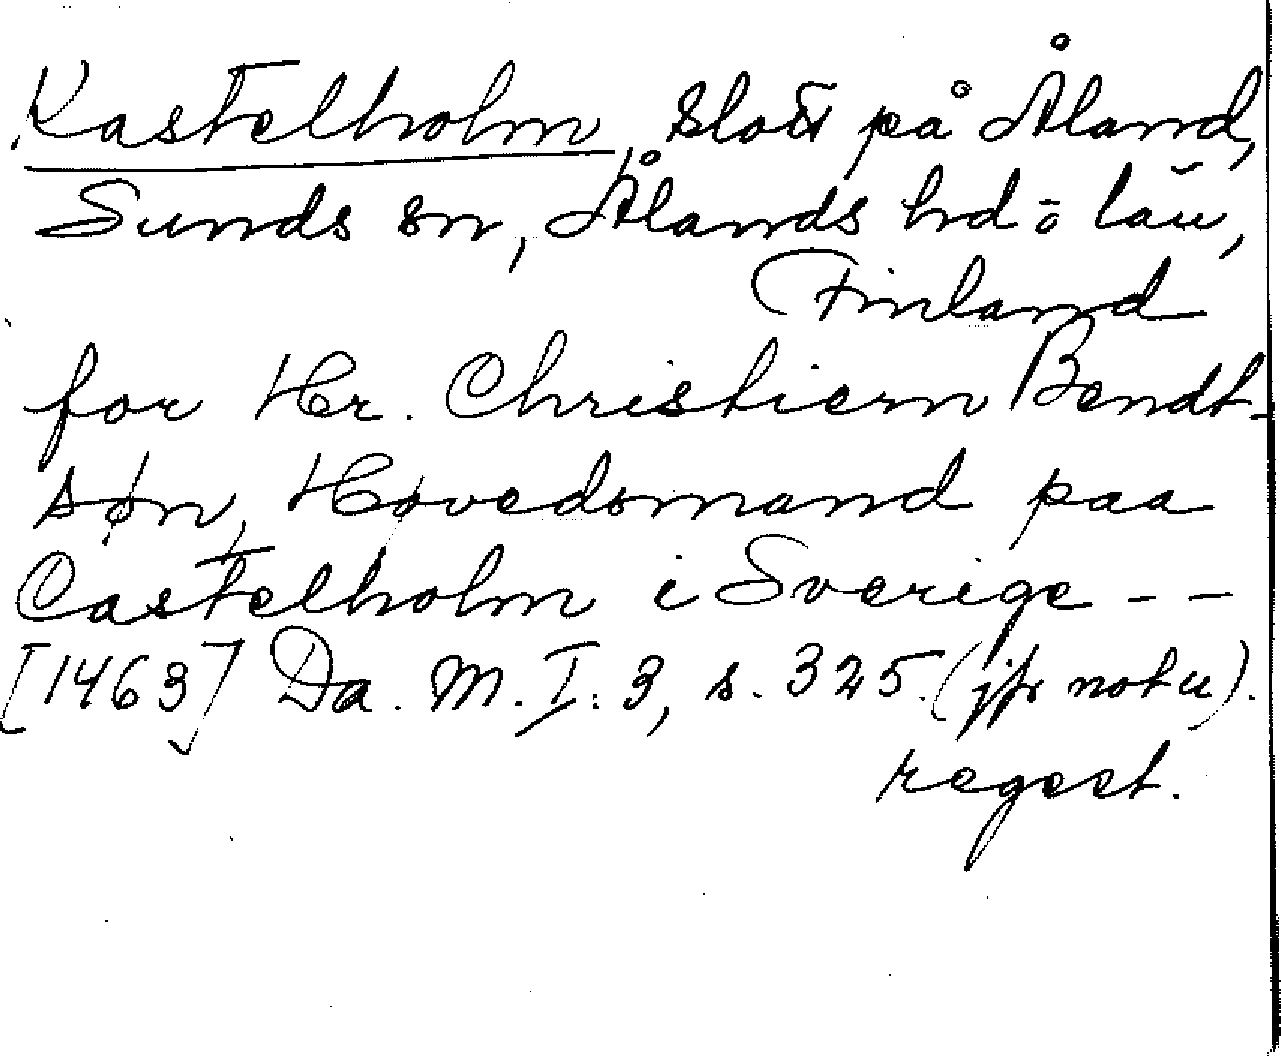 Kastelholm, slott på Åland,
Sunds sn, Ålands hrd o län,
Finland
for Hr. Christiern Bendt-
søn, Hovedsmand paa
Castelholm i Sverige - -
[1463] Da. M. I: 3, s. 325. (jfr not u).
regest.